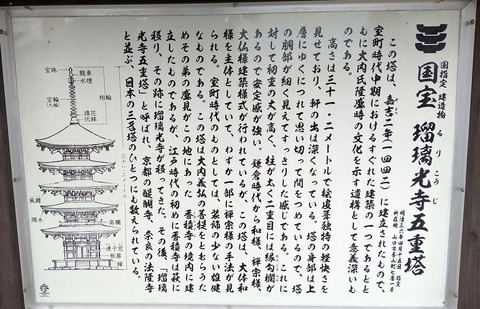 国指定 建造物
国宝 瑠璃光寺五重塔
るりこうじ
この塔は、嘉吉二年(一四四二)に建立されたもので、
室町時代中期におけるすぐれた建築の一つであるとと
もに大内氏隆盛時の文化を示す遺構として意義深いも
のである。
高さは三十一・二メートルで桧皮葺独特の軽快さを
見せており、軒の出は深くなっている。塔の身部は上
層にゆくにつれて思い切って間をつめているので、塔
の胴部が細く見えてすっきりした感じである。これに
対して初重の丈が高く、柱が太く二重目には縁勾欄が
あるので安定感が強い。鎌倉時代から和様、禅宗様、
大仏様建築様式が行われているが、この塔は、大体和
様を主体としていて、わずか一部に禅宗様の手法が見
られる。室町時代のものとしては、装飾の少ない雄健
なものである。この塔は大内義弘の菩提をとむらうた
めその弟の盛見がこの地にあった香積寺の境内に建
立したものであるが、江戸時代の初めに香積寺は萩に
移り、その跡に瑠璃光寺が移ってきた。その後、「瑠璃
光寺五重塔」と呼ばれ、京都の醍醐寺、奈良の法隆寺
と並ぶ、日本の三名塔のひとつにも数えられている。
宝珠
竜車
水煙
相輪
宝輪
(九輪)
請花
伏鉢
風鐸
高欄
連子窓
板扉
縁